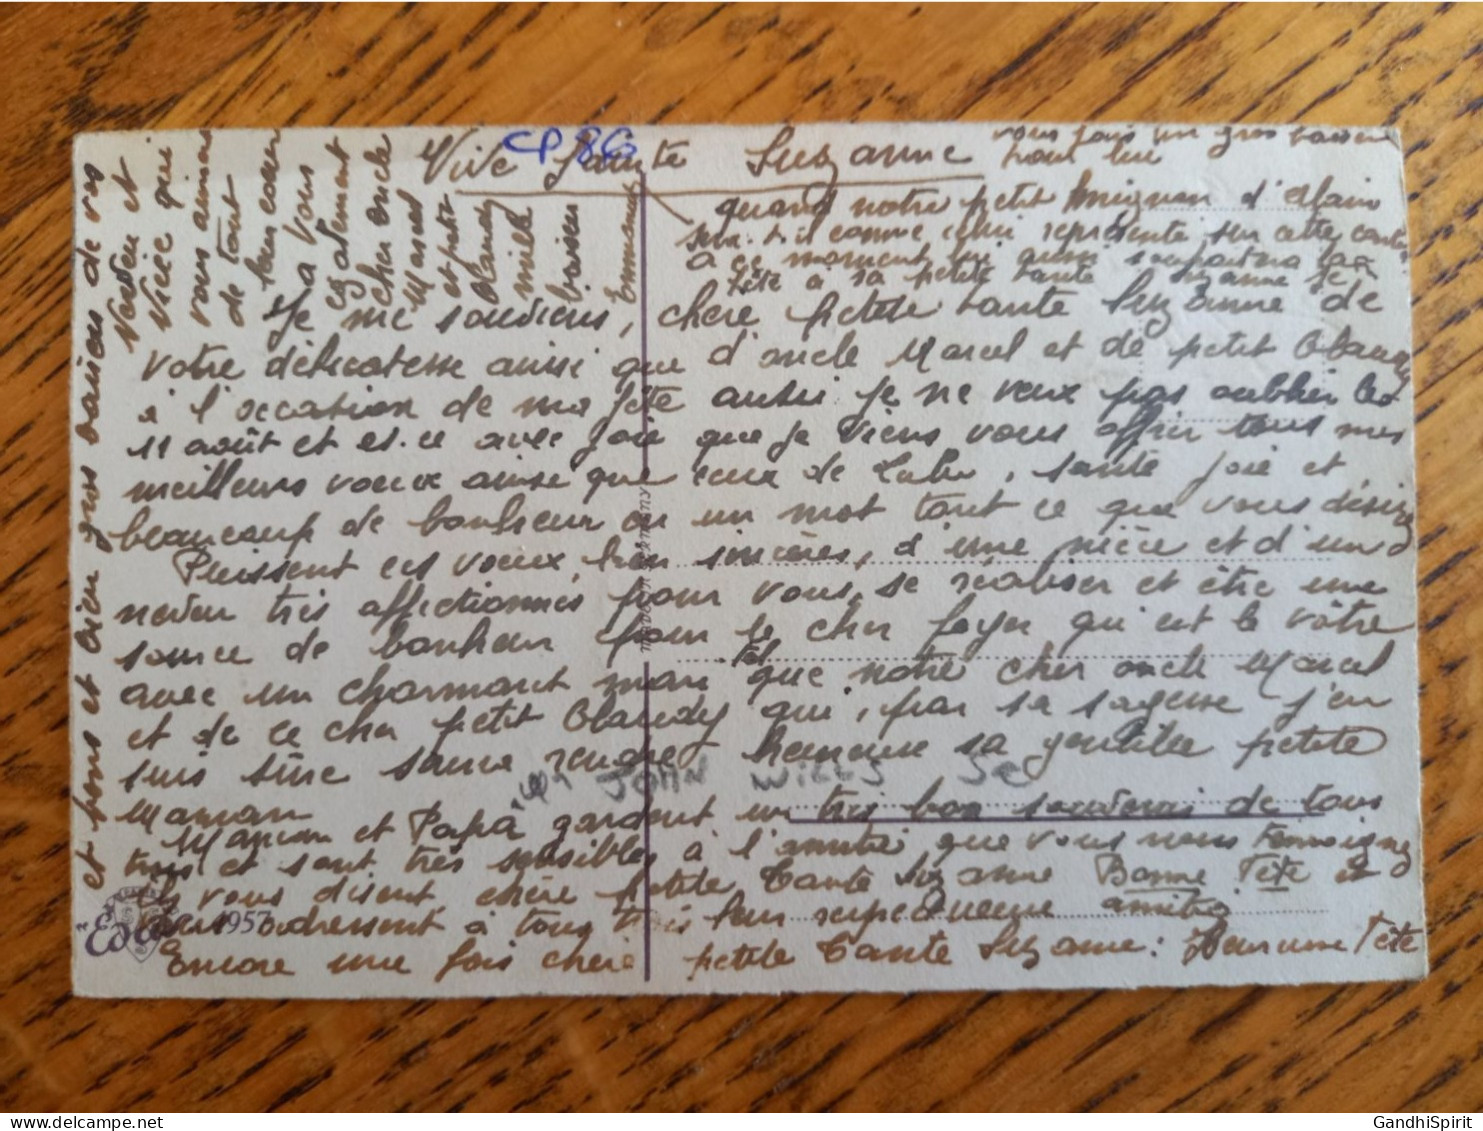 CP 86
Vive Sainte Suzanne
vous fais un gros
pour lui
quand notre petit mignon d'Alain
sera-t-il comme celui représenté sur cette carte
à ce moment
fête à sa petite tante Suzanne
Je me souviens, chère petite tante Suzanne de
votre délicatesse ainsi que d'oncle Marcel et de petit Claudy
à l'occasion de ma fête aussi je ne veux pas oublier le
11 août et est-ce avec joie que je viens vous offrir tous mes
meilleurs voeux ainsi que ceux de , santé joie et
beaucoup de bonheur en un mot tout ce que vous désirez
Puissent ces voeux, bien sincères, d'une nièce et d'un
neveu très affectionnés pour vous, se réaliser et être une
source de bonheur pour le cher foyer qui est le vôtre
avec un charmant mari tel que notre cher oncle Marcel
et de ce cher petit Claudy qui, par sa sagesse j'en
suis sûre saura rendre heureuse sa gentille petite
Maman
JOHN WILLS
Maman et Papa gardent un très bon souvenir de vous
trois et sont très sensibles à l'amitié que vous nous témoignez
Ils vous disent, chère petite Tante Suzanne Bonne Fête et
vous adressent à tous trois leur respectueuse amitié
Encore une fois chère petite Tante Suzanne: Heureuse Fête
et bons et bien gros baisers de vos
neveu et
nièce qui
vous aiment
de tout
leur coeur
à vous
également
cher oncle
Marcel
et petit
Claudy
mille
baisers
Emmanuel
"Edug" 1957
GandhiSpirit